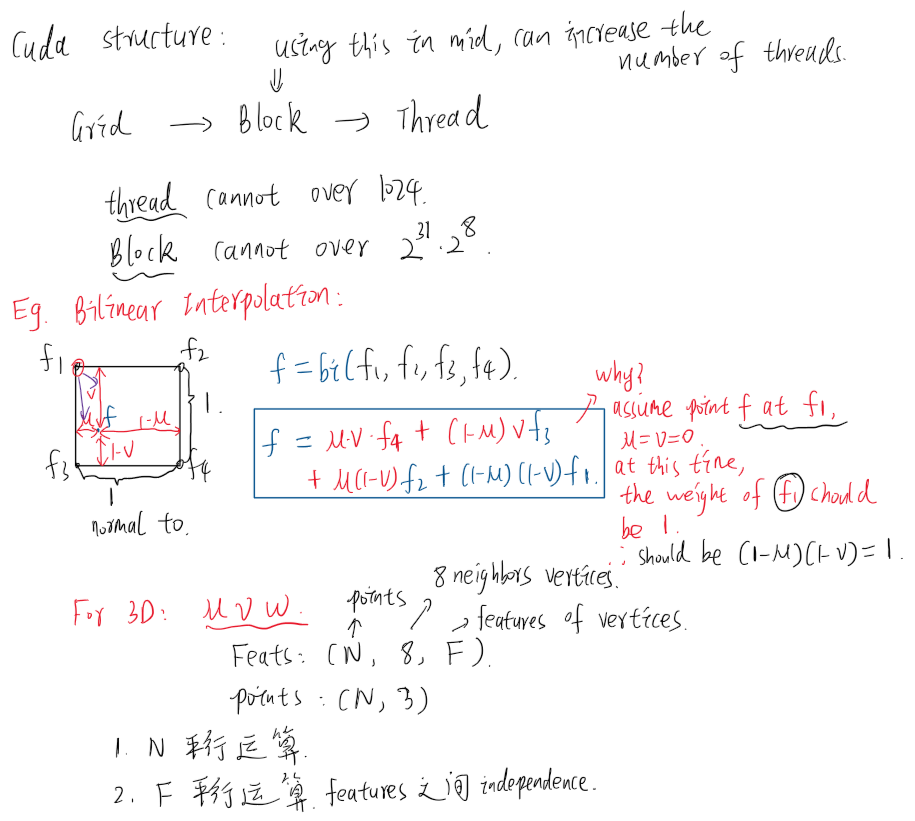 Cuda structure:
using this in mid, can increase the
number of threads.
⇓
Grid → Block → Thread
thread cannot over 1024.
Block cannot over 2^31·2^8.
Eg. Bilinear Interpolation:
f1 f2
v
μ f 1-μ 1.
1-v
f3 f4
1
normal to.
f = bi(f1, f2, f3, f4).
f = μ·v·f4 + (1-μ)vf3
+ μ(1-v)f2 + (1-μ)(1-v)f1.
why?
assume point f at f1,
μ=v=0.
at this time,
the weight of f1 should
be 1.
∴ should be (1-μ)(1-v)=1.
For 3D: μ v w.
points
8 neighbors vertices.
features of vertices.
Feats: (N, 8, F).
points: (N, 3)
1. N 平行运算.
2. F 平行运算. features 之间 independence.